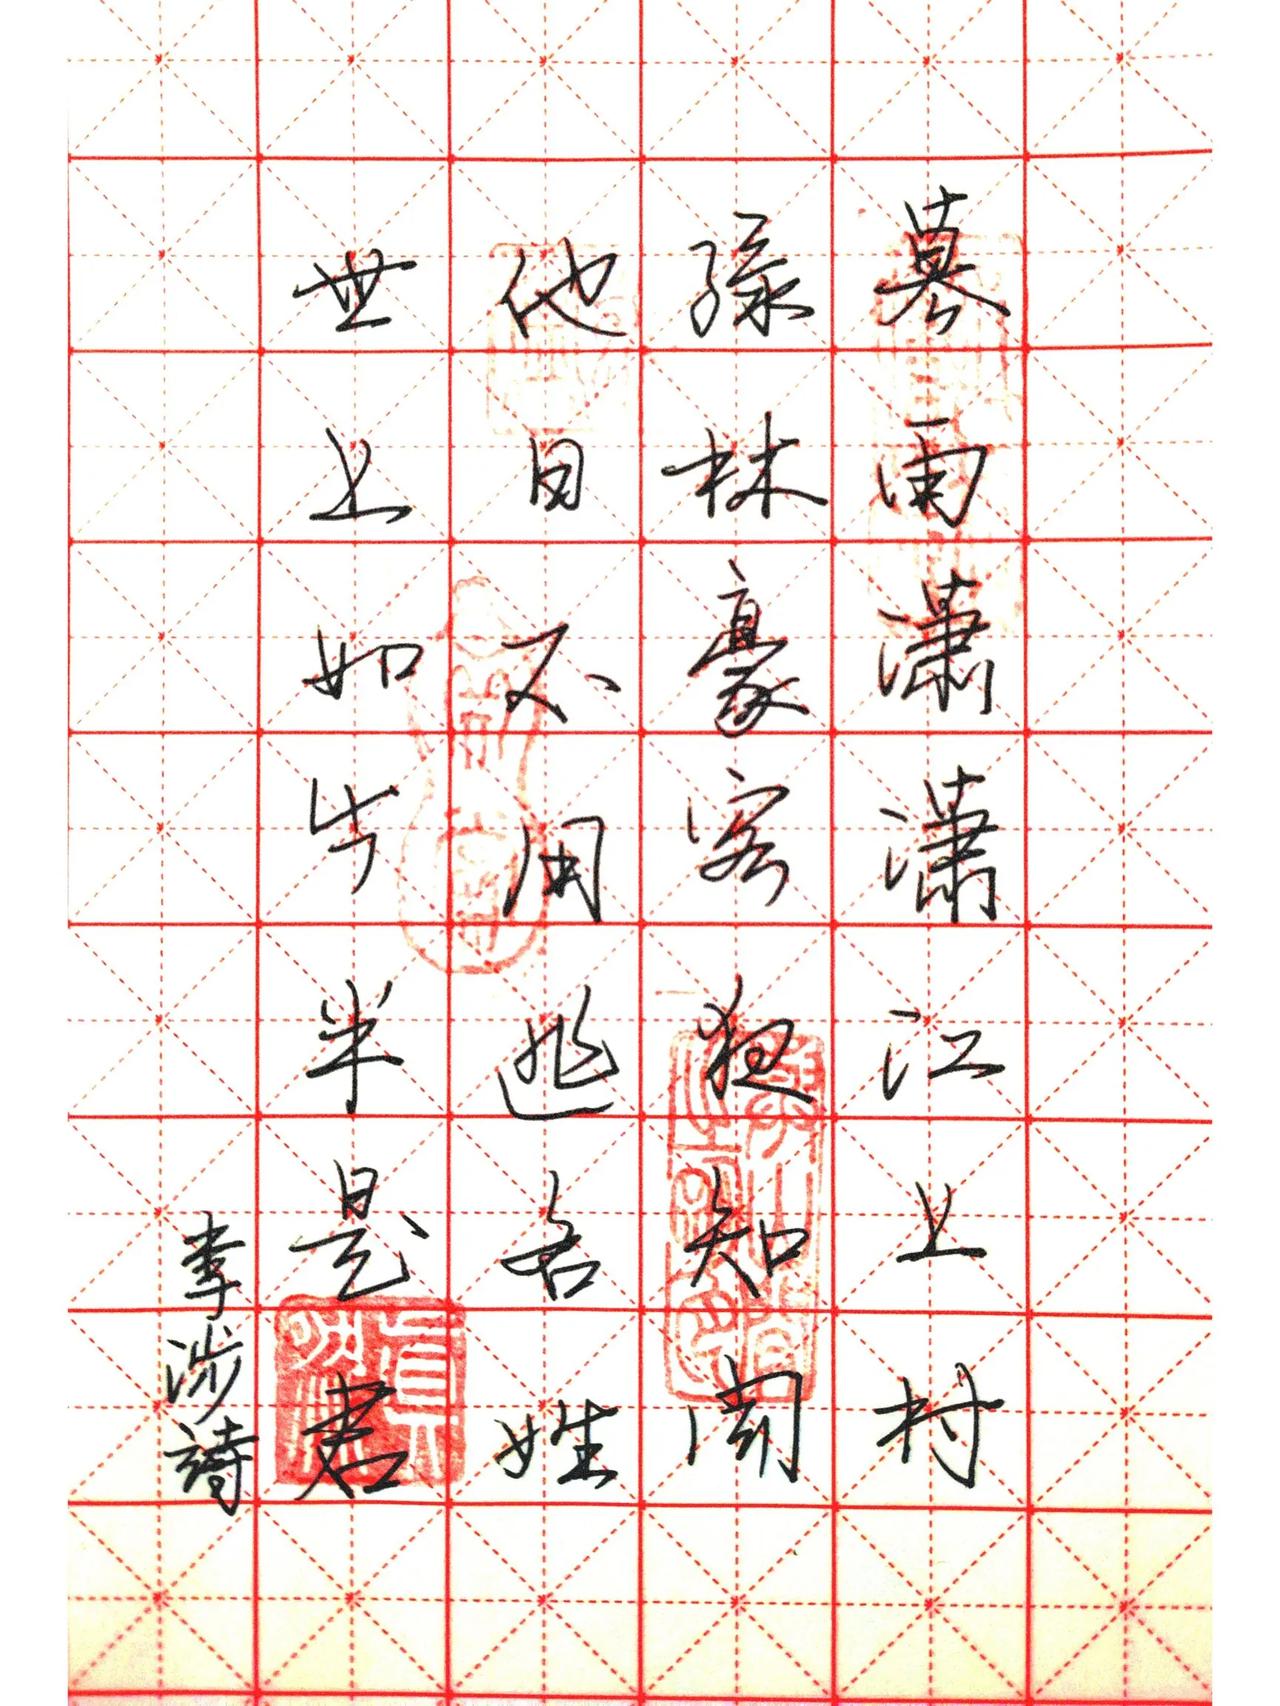 暮雨瀟瀟江上村
绿林豪客夜知闻
他日不用逃名姓
世上如今半是君
李涉詩